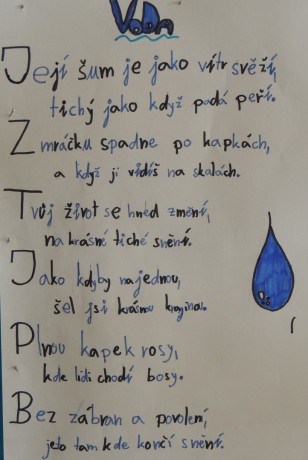 Voda
Její šum je jako vítr svěží,
tichý jako když padá peří.
Z mráčku spadne po kapkách,
a když ji vidíš na skalách.
Tvůj život se hned změní,
na krásné tiché snění.
Jako kdyby najednou,
šel jsi krásnou krajinou.
Plnou kapek rosy,
kde lidi chodí bosy.
Bez zábran a povolení,
jeto tam kde končí snění.